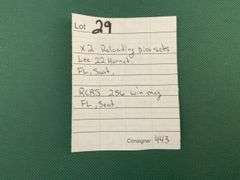 Lot 29
x2 Reloading dies sets
Lee 22 Hornet
FL, Seat,
RCBS 256 win mag
FL, Seat
Consigner 443